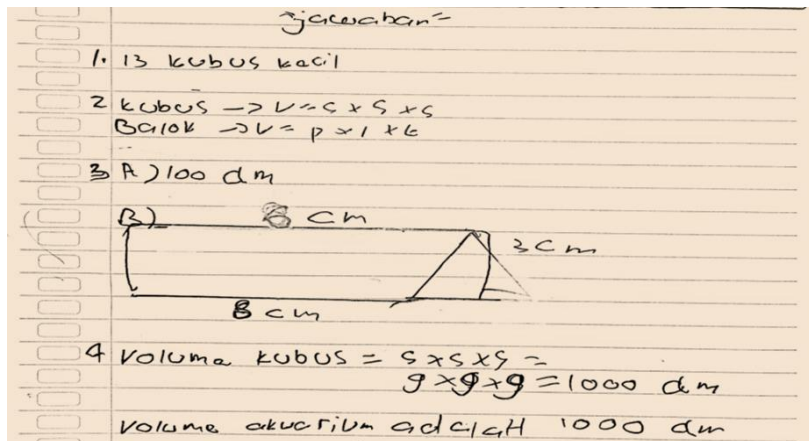 -jawaban-
1. 13 kubus kecil
2 kubus -> V = s x s x s
Balok -> V = p x l x t
3 A) 100 dm
B) 8 cm
3 cm
8 cm
4 Voluma kubus = s x s x s =
9 x 9 x 9 = 1000 dm
Volume akuarium adalaH 1000 dm